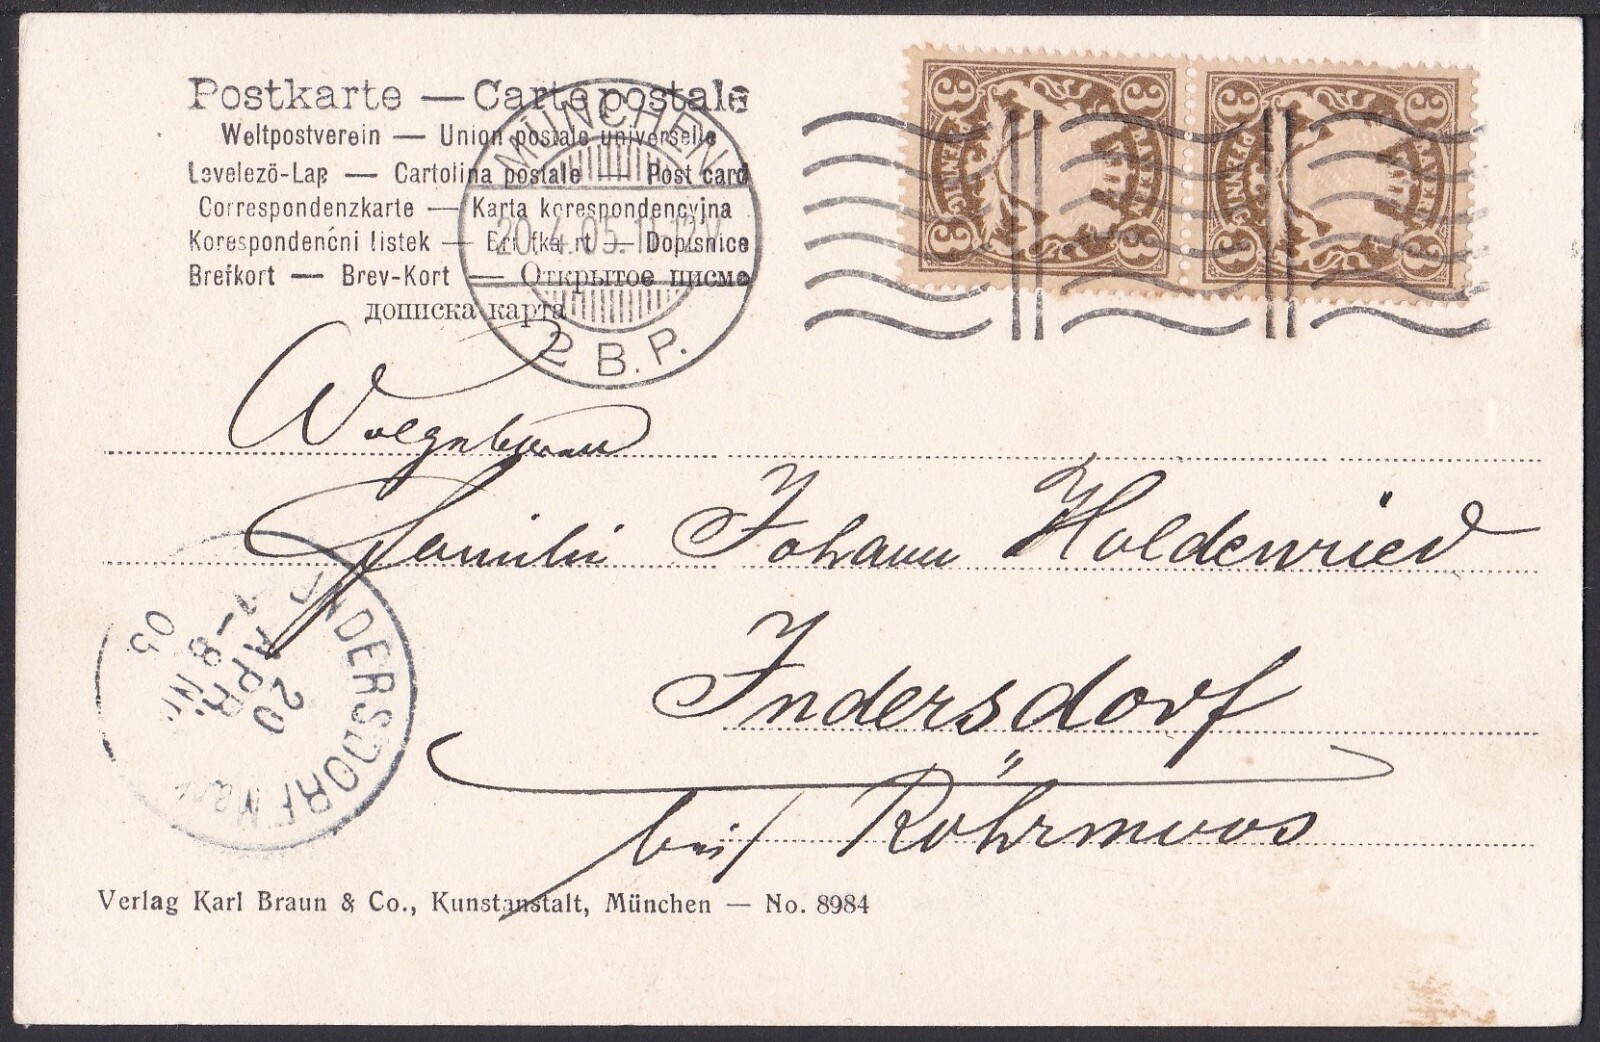 Postkarte — Carte postale
Weltpostverein — Union postale universelle
Levelezö-Lap — Cartolina postale — Post card
Correspondenzkarte — Karta korespondencyjna
Korespondenćni listek — Brifkart — Dopisnice
Brefkort — Brev-Kort — Открытое писмо
дописка карта
MÜNCHEN
20.4.05. 11-12 V.
2 B.P.
3 3
BAYERN
PFENNIG
3 3
3 3
BAYERN
PFENNIG
3 3
Wohlgeboren
Familie Johann Holdenried
Indersdorf
bei Röhrmoos
INDERSDORF Markt
20 APR.
7-8 N.
05
Verlag Karl Braun & Co., Kunstanstalt, München — No. 8984